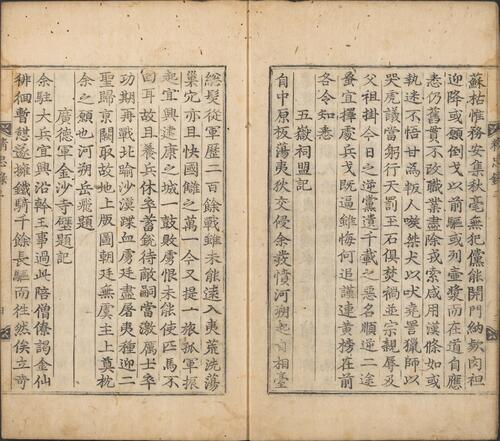 蘇枯惟務安集秋毫無犯儻能開門納欵肉袒
迎降或願倒戈以前驅或列壺漿而在道自應
悉仍舊貫不改職業盡除戎索咸用漢條如或
執迷不悟甘爲叛人嗾桀犬以吠堯詈獵師以
哭虎議當躬行天罰玉石俱焚禍並宗親辱及
父祖掛今日之逆黨遺千載之惡名順逆二途
蚤宜擇處兵戈旣逼雖悔何追謹連黃榜在前
各令知悉
五嶽祠盟記
自中原板蕩夷狄交侵余發憤河朔起自相臺
總髮從軍歷二百餘戰雖未能遠入夷荒洗蕩
巢穴亦且快國讎之萬一今又提一旅孤軍振
起宜興建康之城一鼓敗虜恨未能使匹馬不
回耳故且養兵休卒蓄銳待敵嗣當激厲士卒
功期再戰北踰沙漠蹀血虜廷盡屠夷種迎二
聖歸京闕取故地上版圖朝廷無虞主上奠枕
余之願也河朔岳飛題
廣德軍金沙寺壁題記
余駐大兵宜興沿幹王事過此陪僧僚謁金仙
徘徊暫憩遂擁鐵騎千餘長驅而往然俟立奇